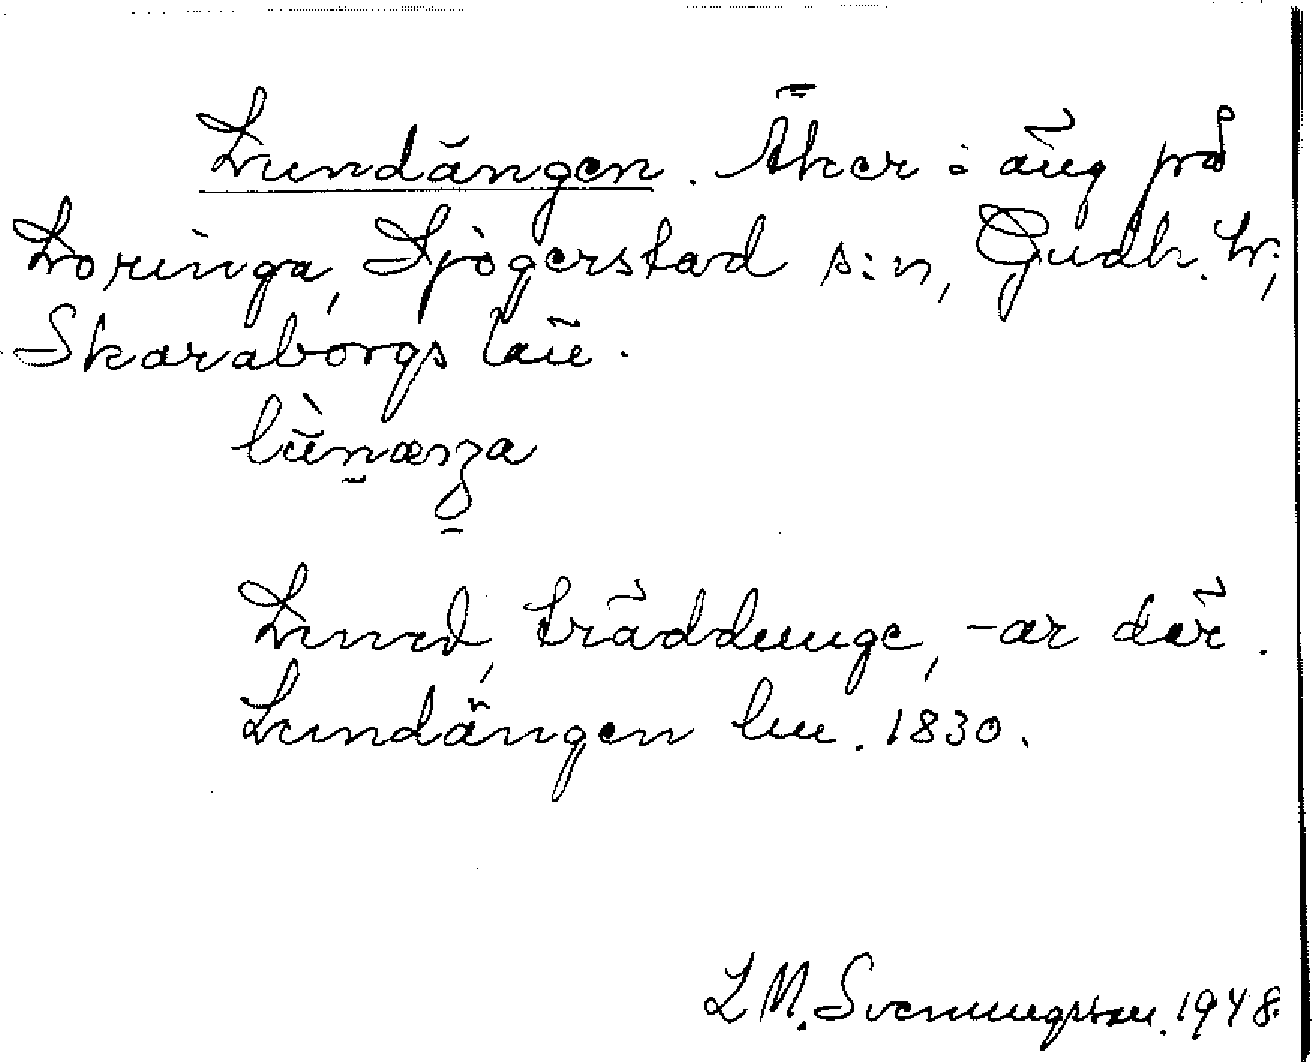 Lundängen. Åker o äng på
Loringa, Sjögerstad s:n, Gudh. hd,
Skaraborgs län.
lùnæŋa
Lund, träddunge, -ar där.
Lundängen lm. 1830.
L M. Svenungsson. 1948.